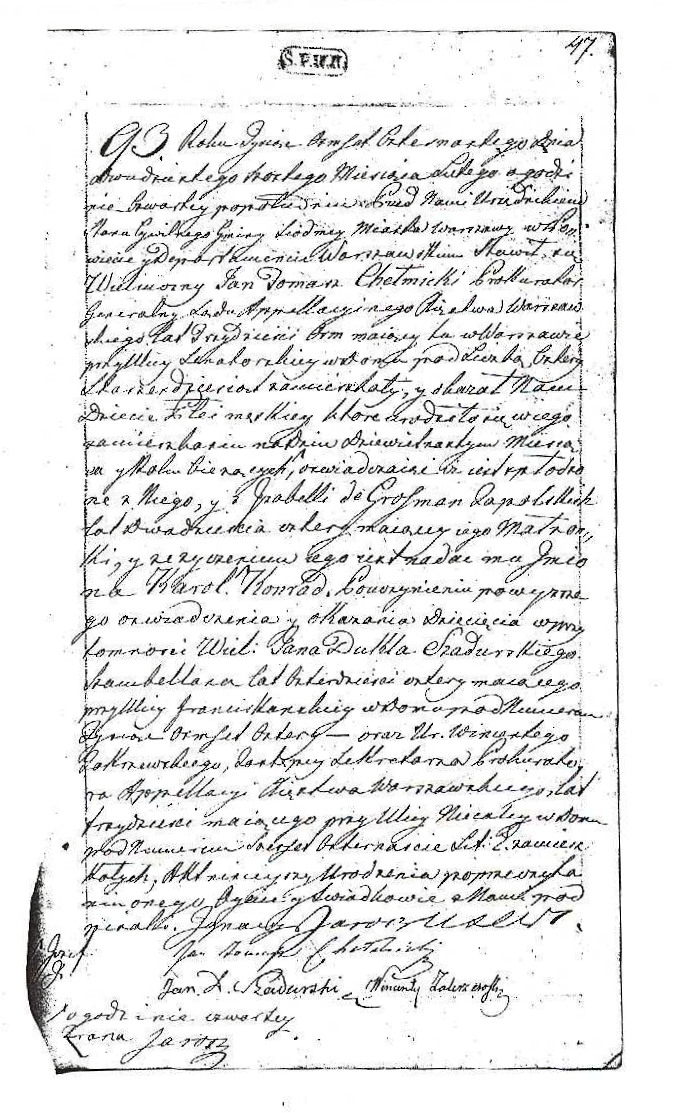 47.
S.P.W.II.
93 Roku Tysiąc Ośmset Czternastego dnia
dwudziestego szostego Miesiąca Lutego o godzi
nie Czwartey popołudniu. Przed Nami Urzędnikiem
Stanu Cywilnego Gminy Siodmey Miasta Warszawy w Po
wiecie y Departamencie Warszawskim Stawił się
Wielmożny Jan Tomasz Chełmicki Prokurator
Generalny Sądu Appellacyinego Xięstwa Warszaw
skiego lat Trzydzieści Ośm maiący tu w Warszawie
przy Ulicy Senatorskiey w Domu pod Liczbą Cztery
sta zamieszkały, y okazał Nam
Dziecię Płci męskiey które urodziło się w iego
zamieszkaniu na dniu Dziewietnastym Miesią
ca y Roku bieżących, oswiadczaiąc iż iest spłodzo
ne z Niego, y z Izabelli de Grosman Zapolskich
lat Dwadzieścia cztery maiącey iego Małżon
ki, y że życzeniem iego iest nadać mu Jmio
na Karol Konrad. Pouczynieniu powyższe
go oswiadczenia y okazania Dziecięcia w przy
tomności Wiel: Jana Dukla Szadurskiego
Szambellana lat Czterdzieści cztery maiącego
przy Ulicy franciszkańskiey w Domu pod Numerem
Tysiąc Ośmset Cztery — oraz Ur. Winiętego
Zakrzewskiego, Zastępcy Sekretarza Prokurato,
ra Appellacyi Xięstwa Warszawskiego, lat
trzydzieści maiącego przy Ulicy Niecałey w Domu
pod Numerem Sześćset Czternaście Lit: E. zamiesz
kałych, Akt nineyszy Urodzenia po przeczyta
niu onego Oyciec y Swiadkowie z Nami pod
pisali. Ignacy Jarosz
Jan Tomasz Chełmicki
Jan D. Szadurski Wincenty Zakrzewski
o godzinie czwartey
zrana Jarosz